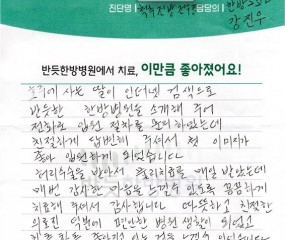 진단명 척추전방전위증 담당의 한방 강진우
반듯한방병원에서 치료, 이만큼 좋아졌어요!
에 사는 딸이 인터넷 검색으로
반듯한 한방병원을 소개해 주어
전화로 입원 절차를 문의하였는데
친절하게 답변해 주셔서 첫 이미지가
좋아 입원하게 되었습니다
허리수술을 받아서 물리치료를 매일 받았는데
매번 감사한 마음을 느낄수 있도록 꼼꼼하게
치료해 주셔서 감사합니다 따뜻하고 친절한
의료진 덕분에 편안한 병원생활이 되었고